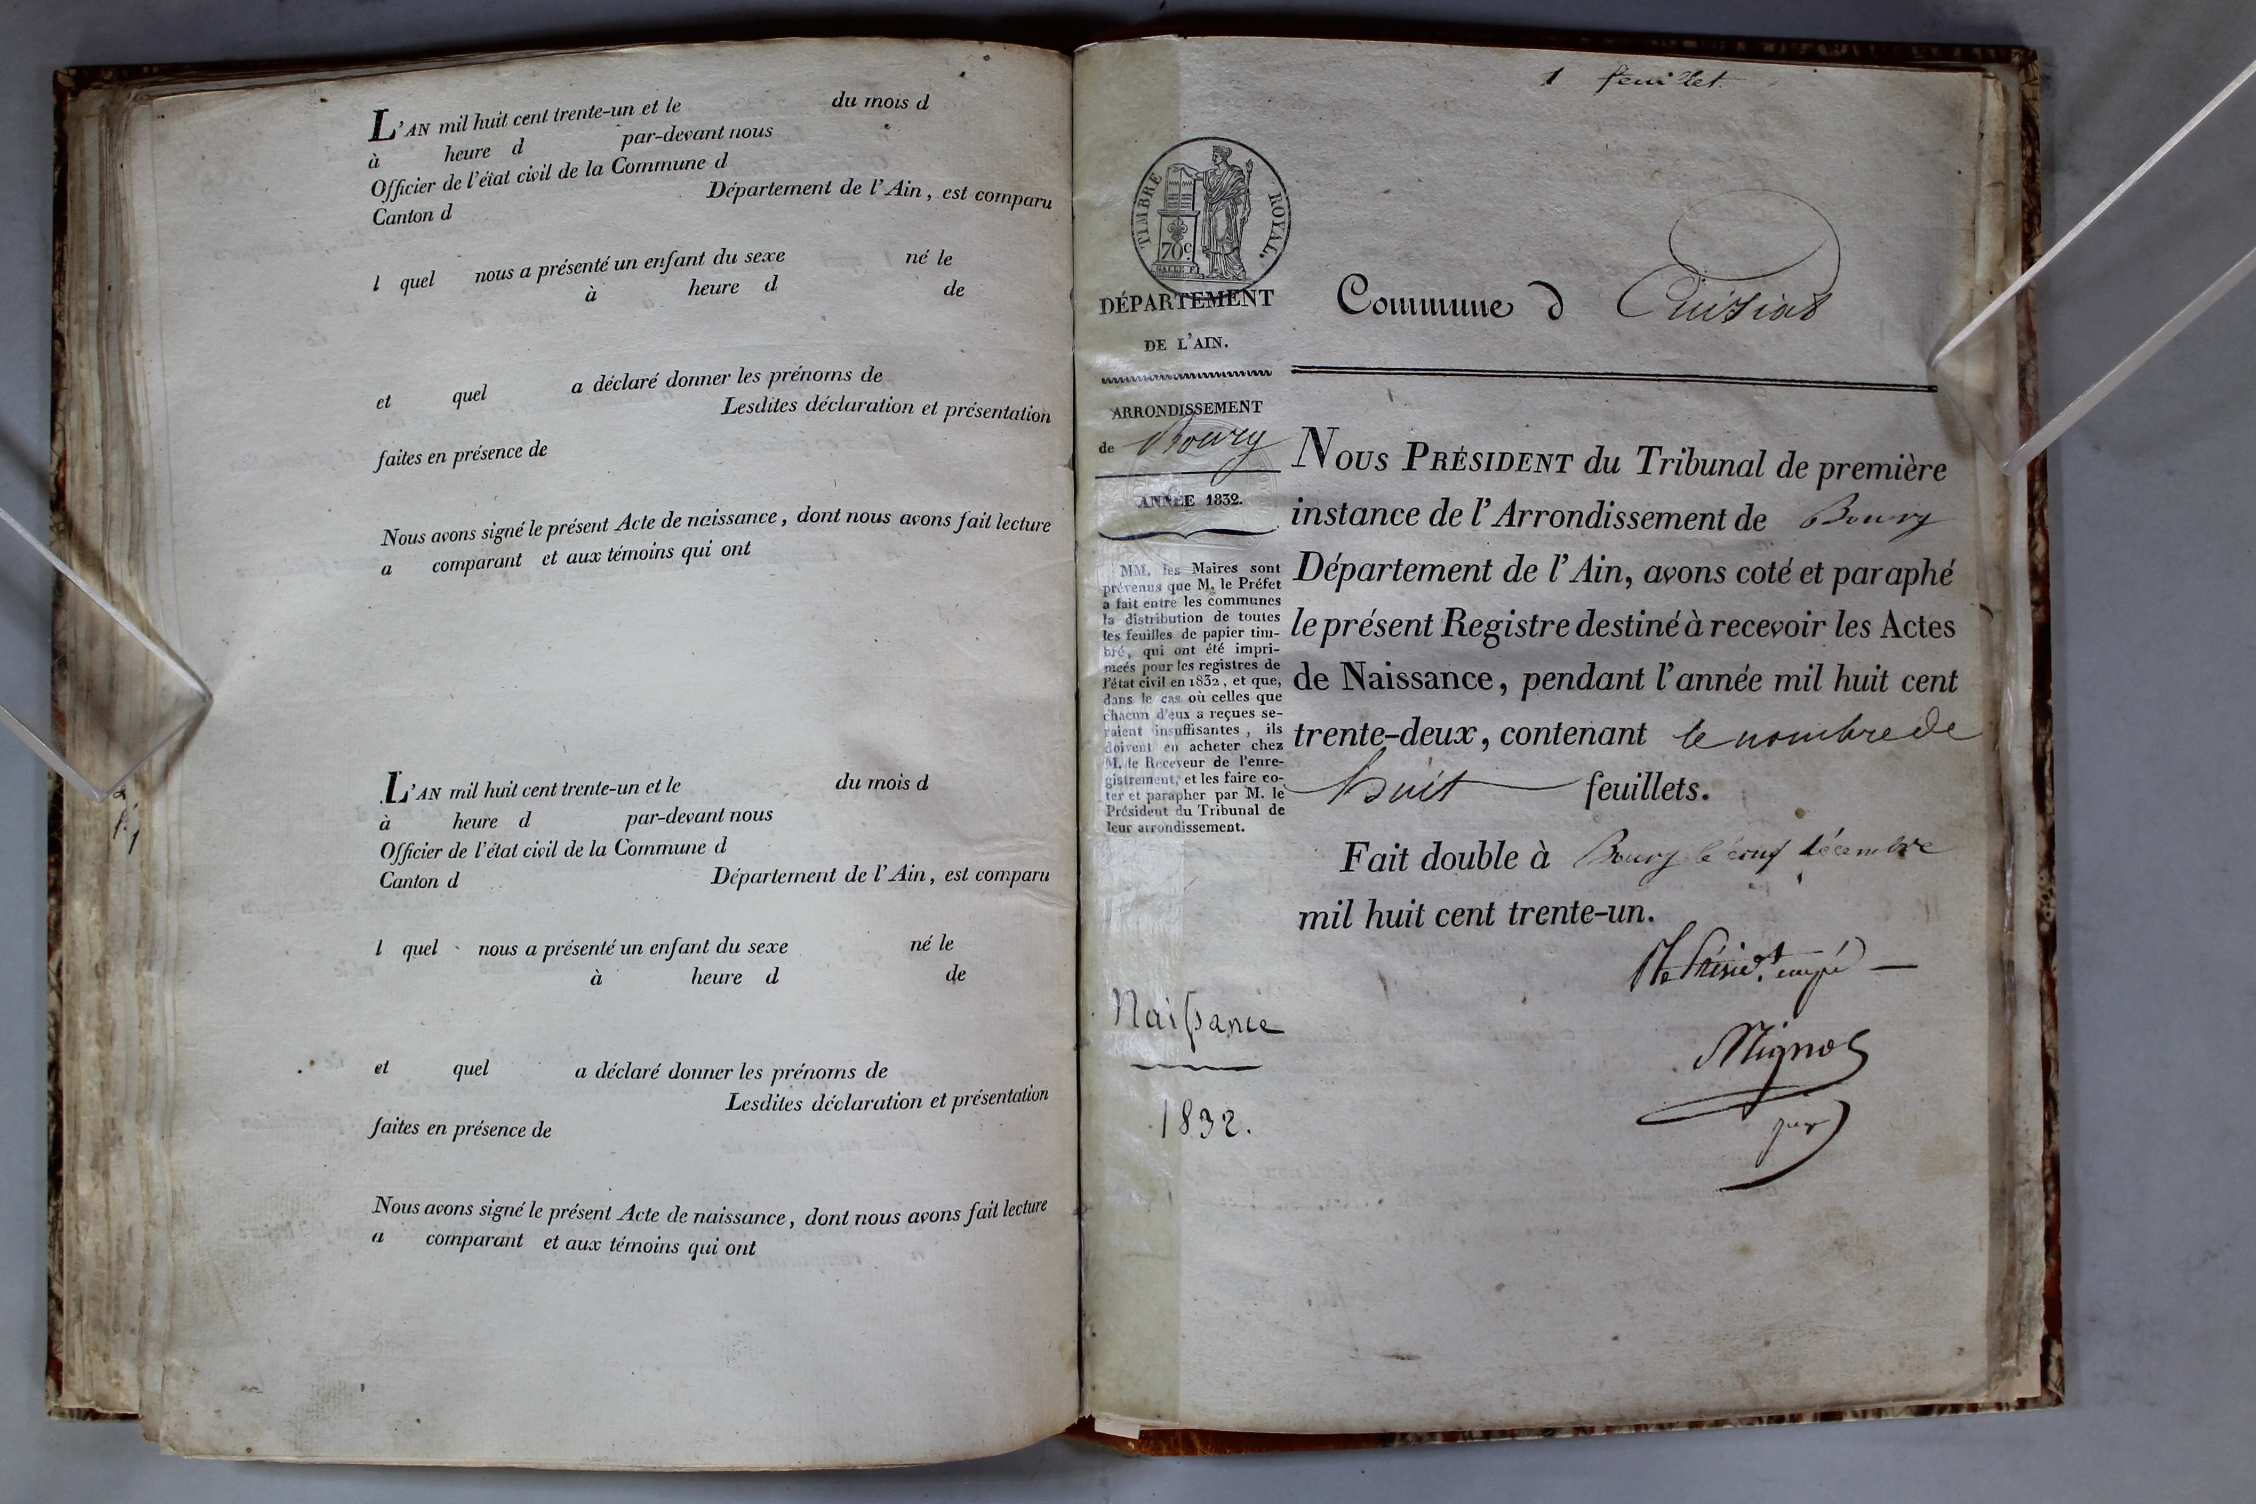 L'AN mil huit cent trente-un et le du mois d
à heure d par-devant nous
Officier de l'état civil de la Commune d
Canton d Département de l'Ain, est comparu
l quel nous a présenté un enfant du sexe né le
à heure d de
et quel a déclaré donner les prénoms de
Lesdites déclaration et présentation
faites en présence de
Nous avons signé le présent Acte de naissance, dont nous avons fait lecture
a comparant et aux témoins qui ont
L'AN mil huit cent trente-un et le du mois d
à heure d par-devant nous
Officier de l'état civil de la Commune d
Canton d Département de l'Ain, est comparu
l quel nous a présenté un enfant du sexe né le
à heure d de
et quel a déclaré donner les prénoms de
Lesdites déclaration et présentation
faites en présence de
Nous avons signé le présent Acte de naissance, dont nous avons fait lecture
a comparant et aux témoins qui ont
1 feuillet.
TIMBRE ROYAL.
70c.
DÉPARTEMENT
DE L'AIN.
ARRONDISSEMENT
de Bourg
ANNÉE 1832.
MM. les Maires sont
prévenus que M. le Préfet
a fait entre les communes
la distribution de toutes
les feuilles de papier tim-
bré, qui ont été impri-
mées pour les registres de
l'état civil en 1832, et que,
dans le cas où celles que
chacun d'eux a reçues se-
raient insuffisantes, ils
doivent en acheter chez
M. le Receveur de l'enre-
gistrement, et les faire co-
ter et parapher par M. le
Président du Tribunal de
leur arrondissement.
Naissance
1832.
Commune d Cuisiat
NOUS PRÉSIDENT du Tribunal de première
instance de l'Arrondissement de Bourg
Département de l'Ain, avons coté et paraphé
le présent Registre destiné à recevoir les Actes
de Naissance, pendant l'année mil huit cent
trente-deux, contenant le nombre de
huit feuillets.
Fait double à Bourg le décembre
mil huit cent trente-un.
Présidt. empé